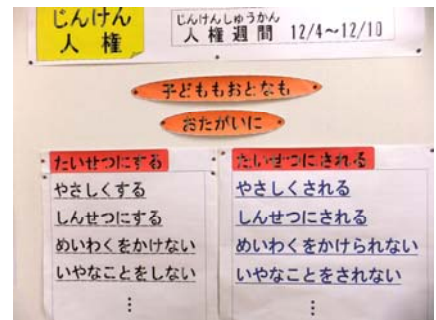 じんけん
人権
じんけんしゅうかん
人権週間 12/4～12/10
子どももおとなも
おたがいに
たいせつにする
やさしくする
しんせつにする
めいわくをかけない
いやなことをしない
⋮
たいせつにされる
やさしくされる
しんせつにされる
めいわくをかけられない
いやなことをされない
⋮